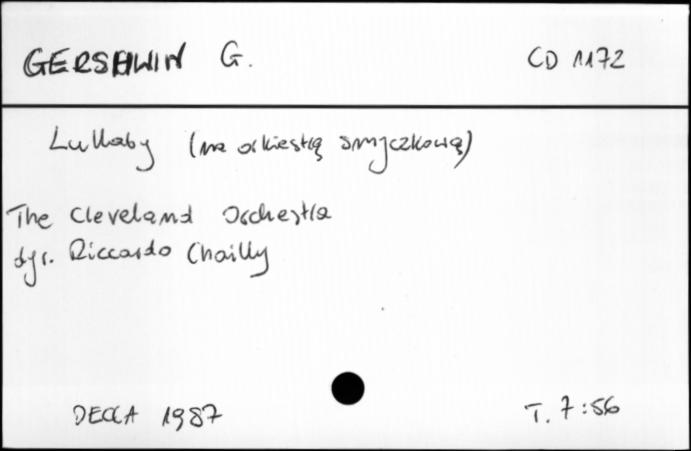 GERSHWIN G. CD 1172
Lullaby (na orkiestrę smyczkową)
The Cleveland Orchestra
dyr. Riccardo Chailly
DECCA 1987 T. 7:56